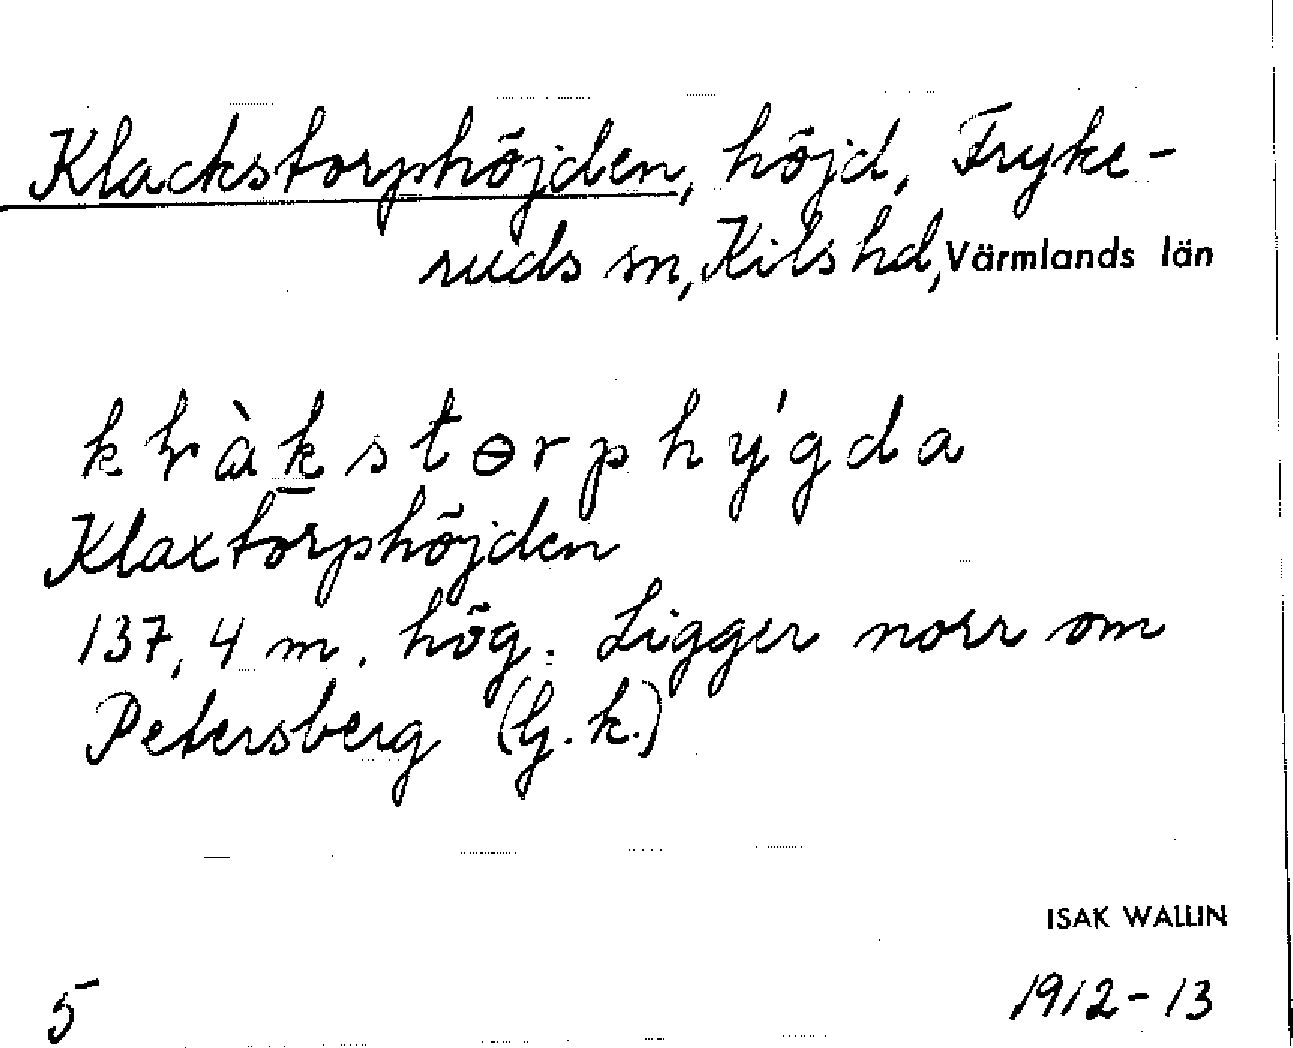 Klackstorphöjden, höjd, Fryke-
ruds sn, Kils hd, Värmlands län
k l r à k s t ɵ r p h ý g d a
Klaxtorphöjden
137,4 m. hög. Ligger norr om
Petersberg (G. k.)
ISAK WALLIN
5 1912-13